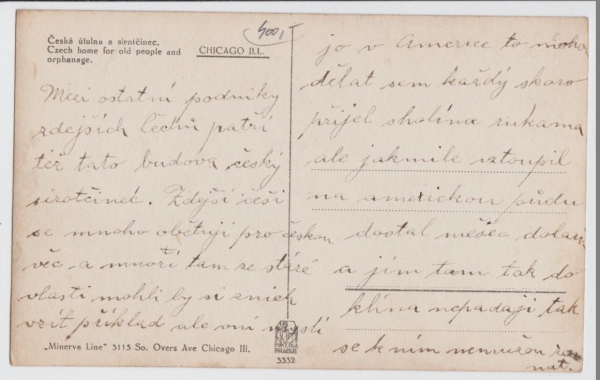 Česká útulna a sirotčinec,
Czech home for old people and
orphanage.
CHICAGO ILL.
Mezi ostatní podniky
zdejších čechů patří
též tato budova český
sirotčinec. Zdejší češi
se mnoho obětují pro českou
věc a mnozí tam ze staré
vlasti mohli by si z nich
vzít příklad ale oni myslí
„Minerva Line" 3115 So. Overs Ave Chicago Ill.
PRAGUE
3332
jo v Americe to mohou
dělat sem každý skoro
přijel s holýma rukama
ale jakmile vstoupil
na americkou půdu
dostal měšec dolarů
a jim tam tak do
klína nepadají tak
se k nim nemužou
nat.